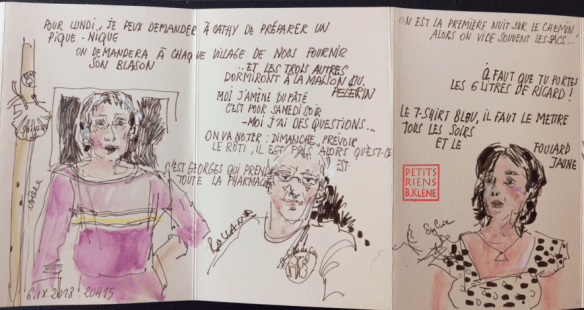 POUR LUNDI, JE PEUX DEMANDER À CATHY DE PRÉPARER UN
PIQUE-NIQUE
ON DEMANDERA À CHAQUE VILLAGE DE NOUS FOURNIR
SON BLASON
...ET LES TROIS AUTRES
DORMIRONT À LA MAISON DU
PELERIN
MOI J'AMÈNE DU PÂTÉ
C'EST POUR SAMEDI SOIR
-MOI J'AI DES QUESTIONS...
ON VA NOTER: DIMANCHE, PRÉVOIR
LE RÔTI, IL EST PRIS ALORS QU'EST-CE
EST
C'EST GEORGES QUI PREND
TOUTE LA PHARMACIE
6.IX.2018. 20H15
ON EST LA PREMIÈRE NUIT SUR LE CHEMIN,
ALORS ON VIDE SOUVENT LES SACS...
IL FAUT QUE TU PORTES
LES 6 LITRES DE RICARD!
LE T-SHIRT BLEU, IL FAUT LE METTRE
TOUS LES SOIRS
ET LE FOULARD
JAUNE
PETITS
RIENS
B.KLENE
Sylvie